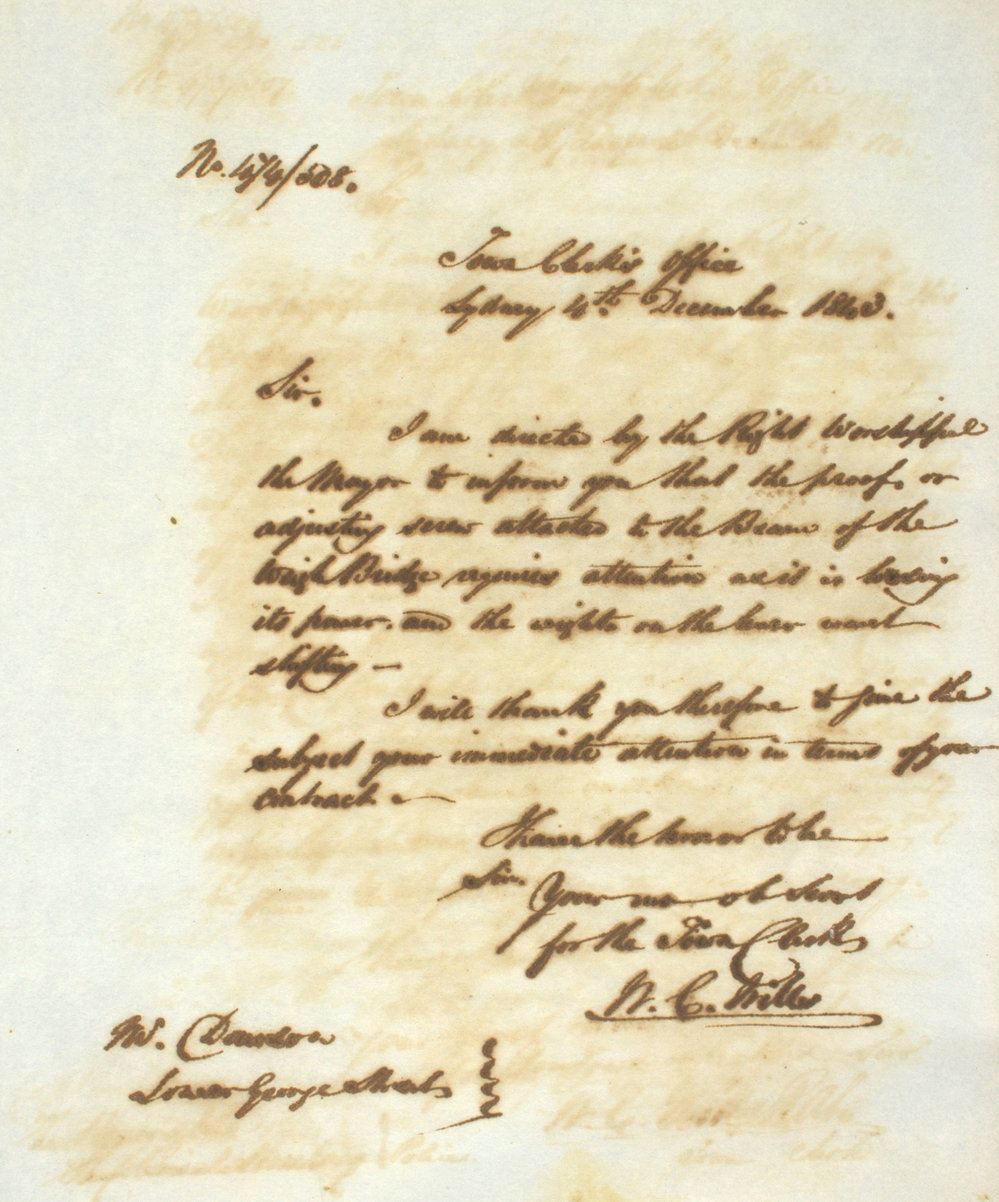 No. 474/508.
Town Clerk's Office
Sydney 4th December 1843.
Sir.
I am directed by the Right Worshipful
the Mayor to inform you that the proof, or
adjusting screw attached to the Beam of the
Weigh Bridge requires attention as it is loosing
its power. and the weights on the lever want
shifting —
I will thank you therefore to give the
subject your immediate attention in terms of your
contract. —
I have the honor to be
Sir.
Your mo ob Servt
for the Town Clerk
W. C. Wills
Mr. Dawson
Lower George Street